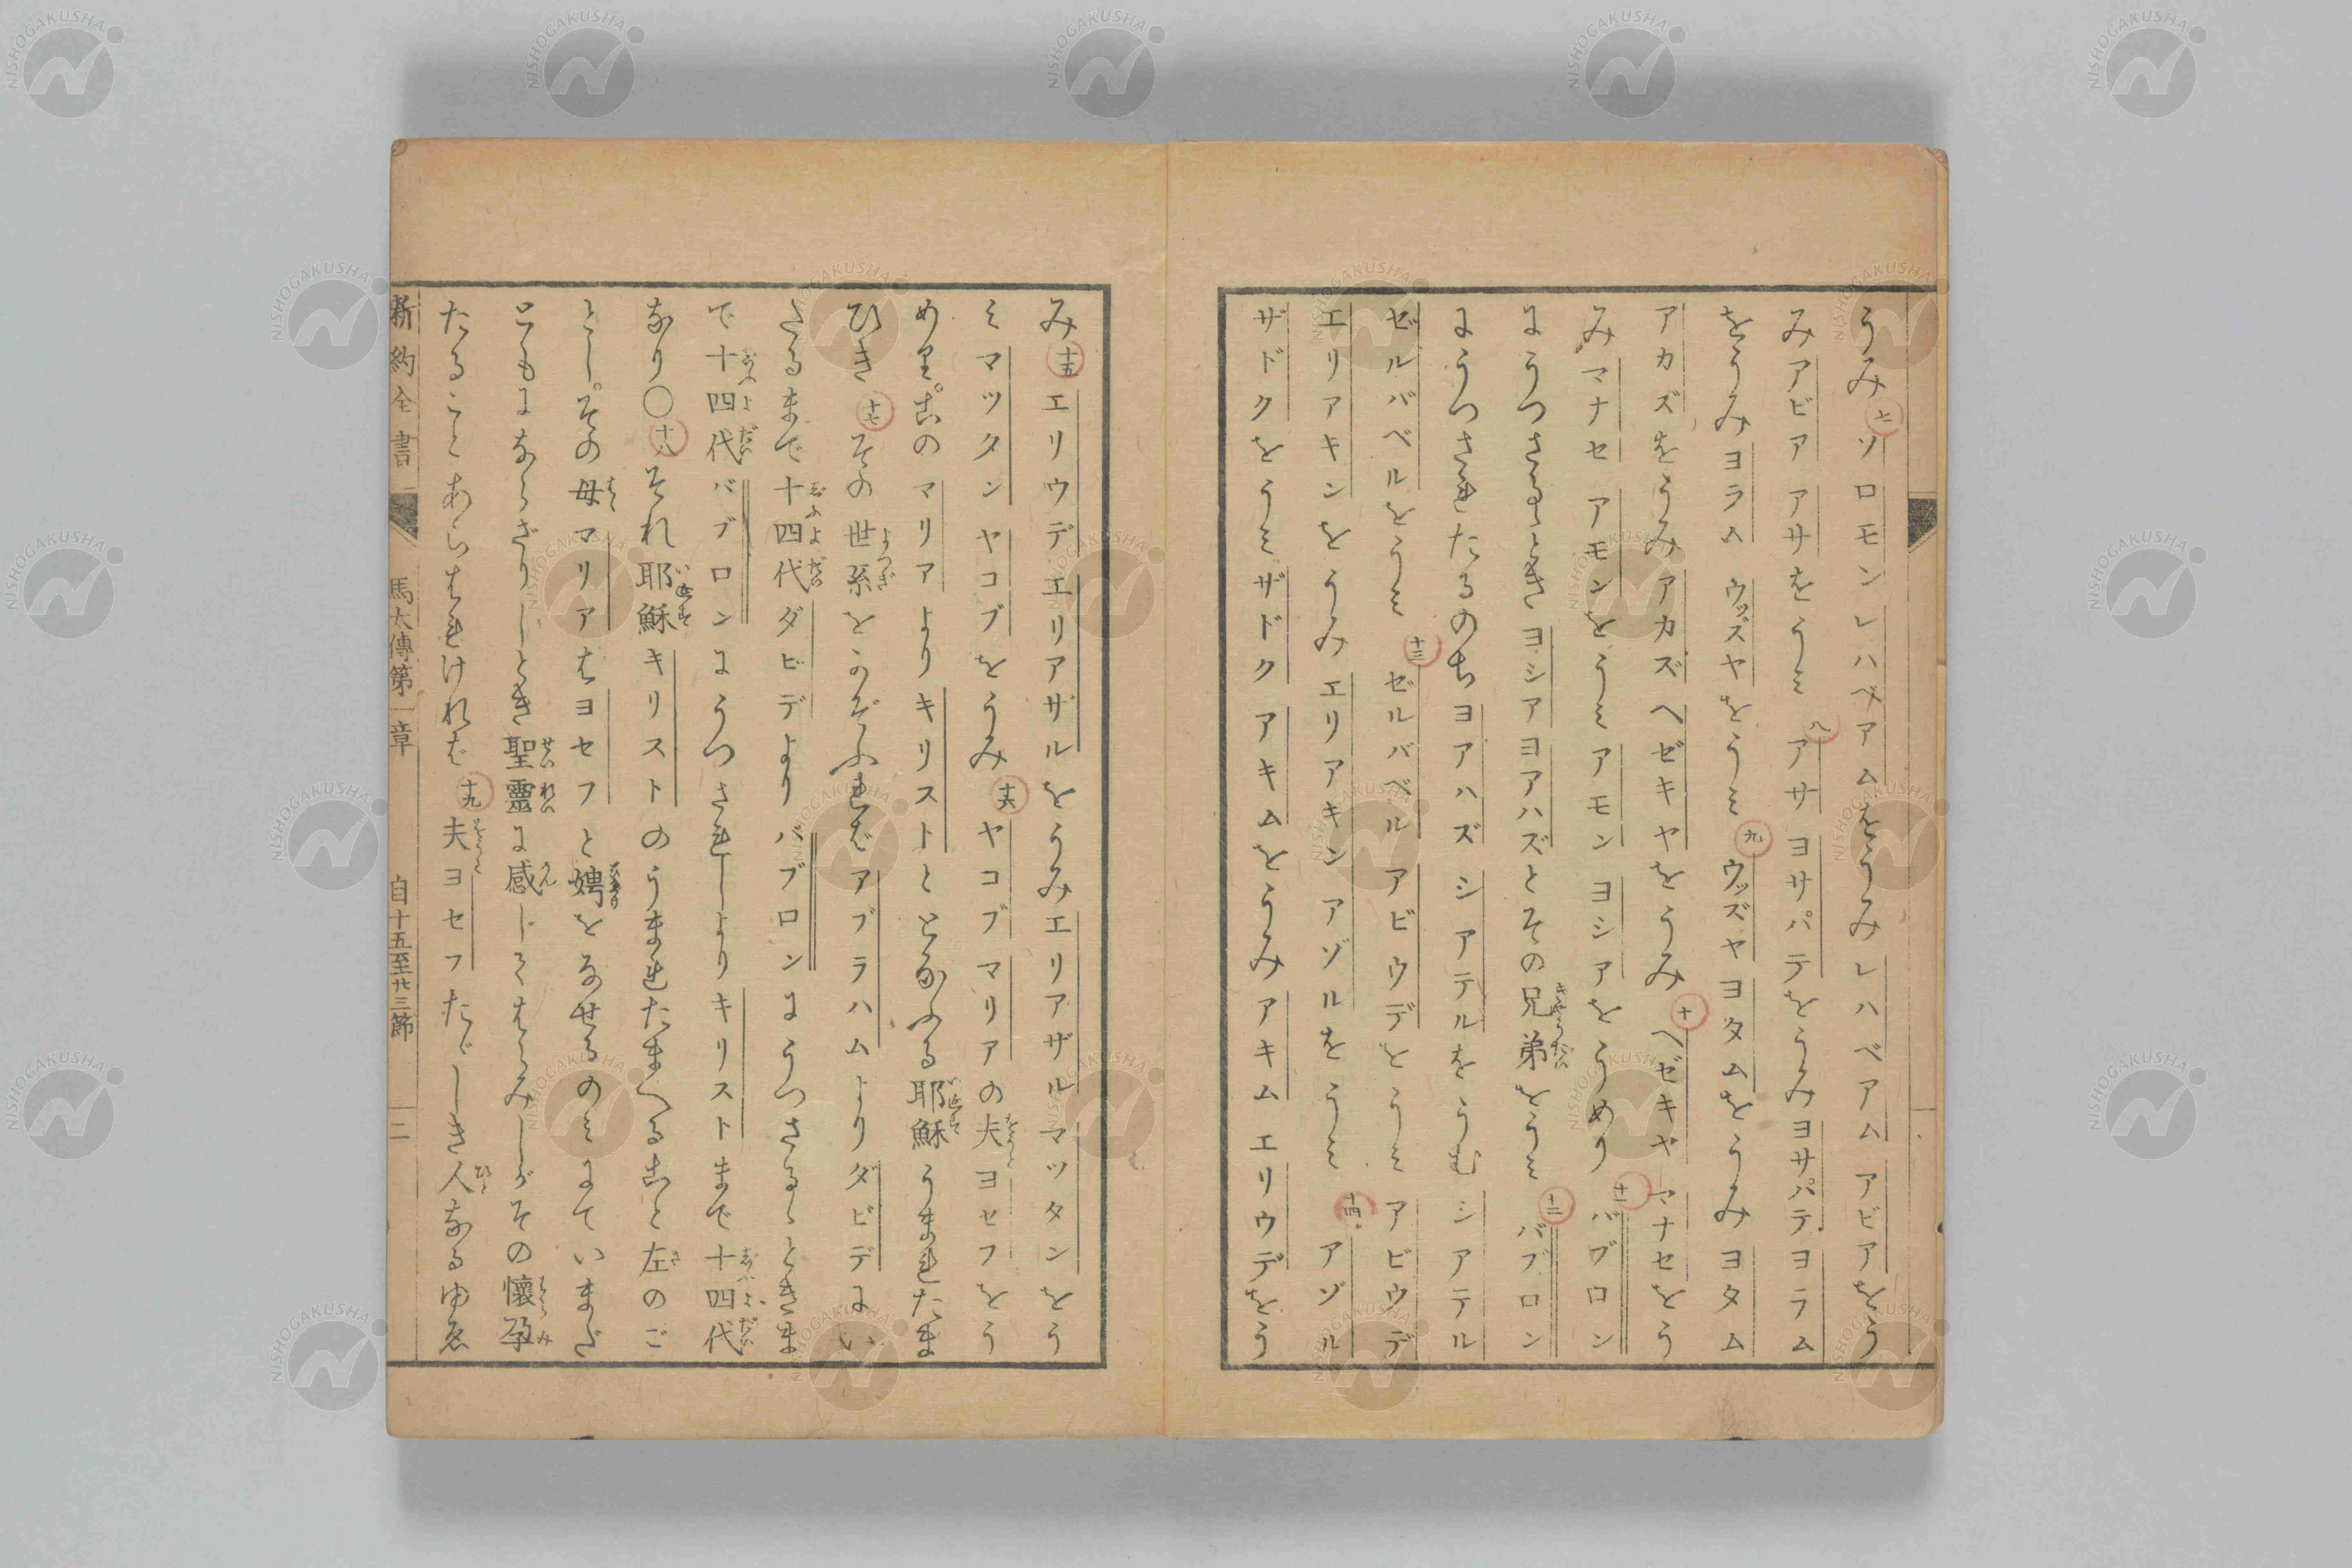 うみ㊆ソロモンレハベアムをうみレハベアムアビアをう
みアビアアサをうミ㊇アサヨサパテをうみヨサパテヨラム
をうみヨラムウッズヤをうミ㊈ウッズヤヨタムをうみヨタム
アカズをうみアカズヘゼキヤをうみ㊉ヘゼキヤマナセをう
みマナセアモンをうミアモンヨシアをうめり十一バブロン
にうつさるゝときヨシアヨアハズとその兄弟をうミ十二バブロン
にうつされたるのちヨアハズシアテルをうむシアテル
ゼルバベルをうミ十三ゼルバベルアビウデをうミアビウデ
エリアキンをうみエリアキンアゾルをうミ十四アゾル
ザドクをうミザドクアキムをうみアキムエリウデをう
み十五エリウデエリアザルをうみエリアザルマツタンをう
ミマツタンヤコブをうみ十六ヤコブマリアの夫ヨセフをう
めり。このマリアよりキリストととなふる耶穌うまれたま
ひき十七その世系をかぞふれバアブラハムよりダビデにい
たるまで十四代ダビデよりバブロンにうつさるゝときま
で十四代バブロンにうつされしよりキリストまで十四代
なり〇十八それ耶穌キリストのうまれたまへること左のご
とし。その母マリアはヨセフと娉をなせるのミにていまだ
ともにならざりしとき聖靈に感じてはらみしがその懷孕
たることあらはれけれバ十九夫ヨセフたゞしき人なるゆゑ
新約全書
馬太傳第一章
自十五至廿三節
二